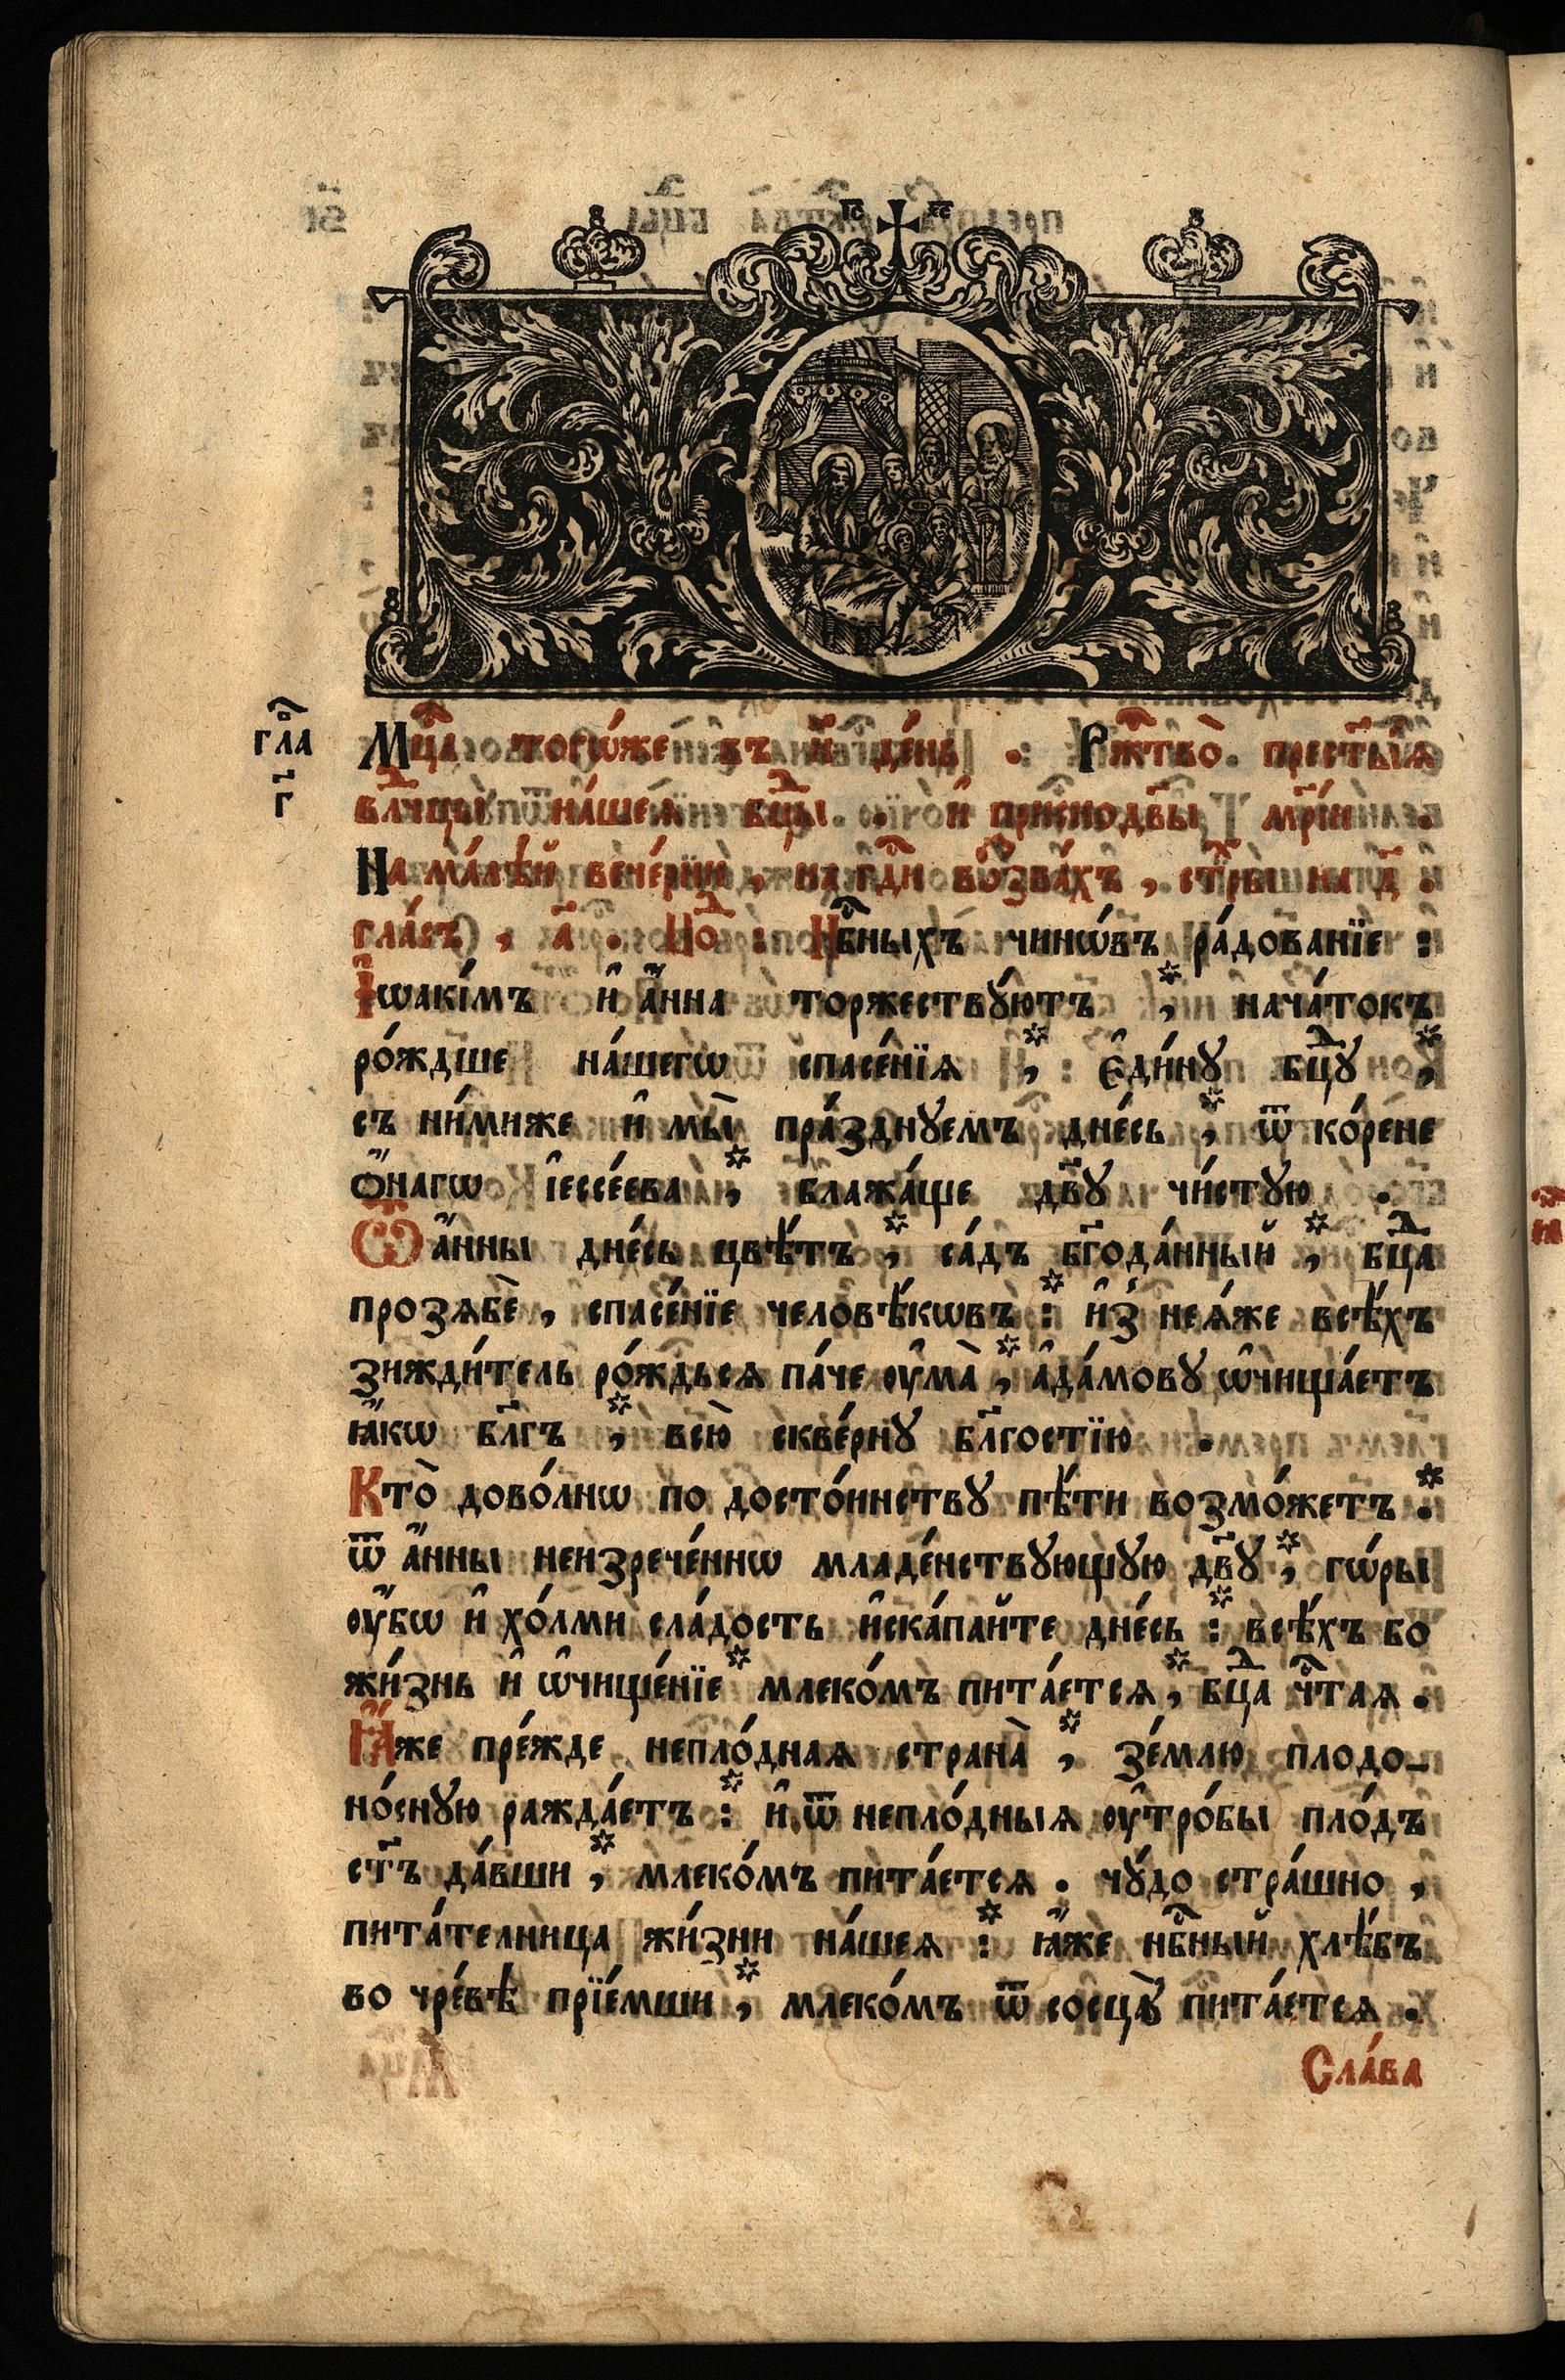 І҃С ХС҃
гла̑
г҃
Мц̑а тогѡ́же въ и҃ де́нь . Рж̑тво̀ . прест҃ы́ѧ
влⷣчцы на́шеѧ бцⷣы . и҆ приснодв҃ы мр҃і́и .
На ма́лѣй вече́рни , на гдⷭ҇и воззва́хъ , ст҃ры на д҃ .
гла́съ , а҃ . Поⷣ : Нбⷭ҇ныхъ чинѡ́въ ра́дованїе :
І҆ѡакі́мъ и҆ а҆́нна торжеству́ютъ * , нача́токъ
ро́ждше на́шегѡ спасе́нїѧ * , є҆ди́ну бцⷣу * ,
съ ни́миже и҆ мы̀ пра́зднуемъ дне́сь * , ѿ ко́рене
о҆́нагѡ і҆ессе́ева * , блажа́ще дв҃у чи́стую .
Ѿ а҆́нны дне́сь цвѣ́тъ * , са́дъ бг҃ода́нный * , бцⷣа
прозѧбѐ , спасе́нїе человѣ́кѡвъ * : и҆з̾ неѧ́же всѣ́хъ
зижди́тель ро́ждьсѧ па́че ѹ҆ма̀ * , а҆да́мову ѡ҆чища́етъ
ꙗ҆́кѡ бл҃гъ * , всю̀ скве́рну бл҃гостїю .
Кто̀ дово́лнѡ по досто́инству пѣ́ти возмо́жетъ * .
ѿ а҆́нны неизрече́ннѡ младе́нствующую дв҃у * , го́ры
ѹ҆́бѡ и҆ хо́лми сла́дость и҆ска́пайте дне́сь * : всѣ́хъ бо
жи́знь и҆ ѡ҆чище́нїе * млеко́мъ пита́етсѧ * , бцⷣа чⷭ҇таѧ .
Ꙗ҆́же пре́жде непло́днаѧ страна̀ * , зе́млю плодо-
но́сную ражда́етъ * : и҆ ѿ непло́дныѧ ѹ҆тро́бы пло́дъ
ст҃ъ да́вши * , млеко́мъ пита́етсѧ . чу́до стра́шно ,
пита́телница жи́зни на́шеѧ * : ꙗ҆́же нбⷭ҇ный хлѣ́бъ
во чре́вѣ прїе́мши * , млеко́мъ ѿ сосцꙋ̀ пита́етсѧ .
Сла́ва